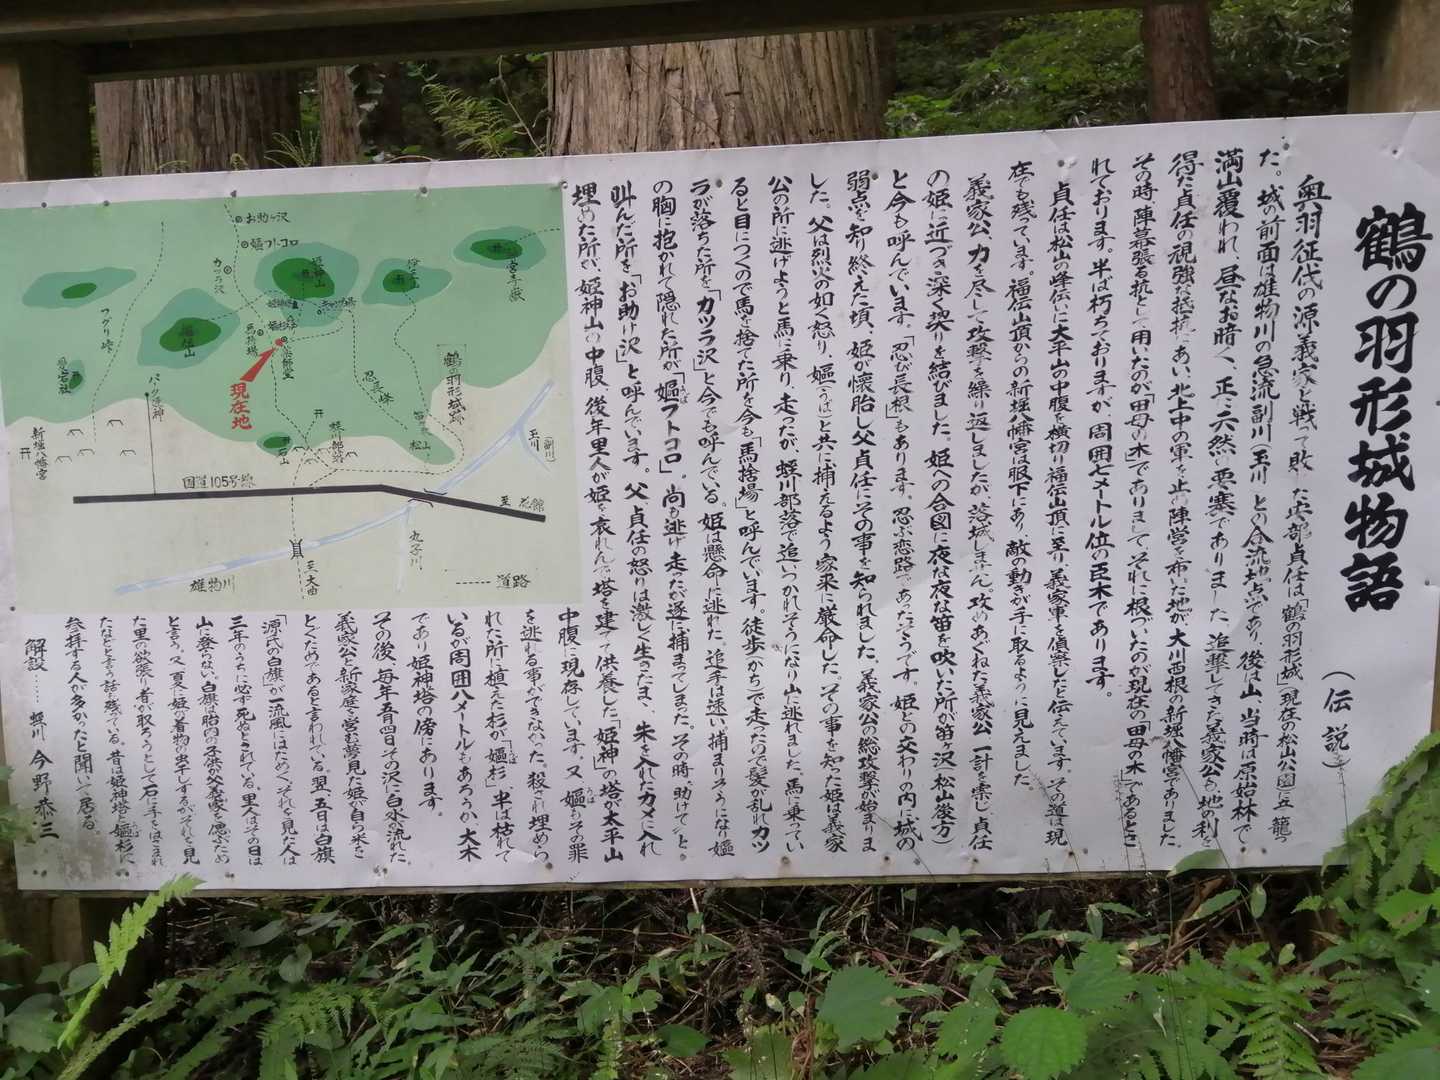 鶴の羽形城物語
（伝説）
奥羽征代の源義家と戦って敗れた安部貞任は「鶴の羽形城」（現在の松山公園）に籠っ
た。城の前面は雄物川の急流副川（玉川）との合流地点であり、後は山、当時は原始林で
満山覆われ、昼なお暗く、正に六然の要塞でありました。追撃してきた義家公も、地の利を
得た貞任の視強な抵抗にあい、北上中の軍を止め陣営を布いた地が、大川西根の新堀八幡宮でありました。
その時、陣幕張る抗として用いたのが「田母の木」でありまして、それに根づいたのが現在の「田母の木」であるとさ
れております。半ば朽ちておりますが、周囲七メートル位の巨木であります。
貞任は松山の峰伝いに大平山の中腹を横切り福伝山頂に至り、義家軍を偵察したと伝えています。その道は現
在でも残っています。福伝山頂からの新堀八幡宮は眼下にあり、敵の動きが手に取るように見えました。
義家公、力を尽して攻撃を繰り返しましたが落城しません。攻めあぐねた義家公、一計を案じ貞任
の姫に近づき深く契りを結びました。姫への合図に夜な夜な笛を吹いた所が笛ヶ沢（松山後方）
と今も呼んでいます。「忍び長根」もあります。忍ぶ恋路であったそうです。姫との交わりの内に城の
弱点を知り終えた頃、姫が懐胎し父貞任にその事を知られました。義家公の総攻撃が始まりま
した。父は烈火の如く怒り、嫗（うば）と共に捕えるよう家来に厳命した。その事を知った姫は義家
公の所に逃げようと馬に乗り、走ったが、蛭川部落で追いつかれそうになり山に逃れました。馬に乗ってい
ると目につくので馬を捨てた所を今も「馬捨場」と呼んでいます。徒歩（かち）で走ったので髪が乱れカツ
ラが落ちた所を「カツラ沢」と今でも呼んでいる。姫は懸命に逃れた、追手は速い捕まりそうになり嫗
の胸に抱かれて隠れた所が「嫗フトコロ」、尚も逃げ走ったが遂に捕まってしまった。その時、助けてと
叫んだ所を「お助け沢」と呼んでいます。父、貞任の怒りは激しく生きたまま、朱を入れたカメに入れ
埋めた所が、姫神山の中腹、後年里人が姫を哀れんで塔を建て供養した「姫神」の塔が太平山
中腹に現存しています。又、嫗もその罪
を逃れる事ができなかった。殺され埋めら
れた所に植えた杉が「嫗杉」半は枯れて
いるが周囲八メートルもあろうか、大木
であり姫神塔の傍にあります。
その後、毎年五月四日その沢に白水が流れた。
義家公と新家庭を営む夢見た姫が自ら米を
とくためであると言われている。翌、五日は白旗
「源氏の白旗」が一流風にはためく、それを見た人は
三年のうちに必ず死ぬとされている。里人はその日は
山に登らない。白旗は胎内の子供が父義家を偲ぶため
と言う。又、夏に姫の着物の虫干しするがそれを見
た里の欲張り者が取ろうとして石に手をはさまれ
たなどと言う話も残っている。昔は姫神塔と嫗杉に
参拝する人が多かったと聞いて居る。
解説……蛭川　今野恭三
お助ヶ沢
嫗フトコロ
カツラ沢
姫神山
馬捨場
薬師堂
現在地
福伝山
フグリ峠
新堀八幡宮
石山
蛭川部落
忍長峰
鶴の羽形城跡
笛ヶ沢
松山
玉川
（副川）
国道105号線
至 花館
丸子川
雄物川
至大曲
道路